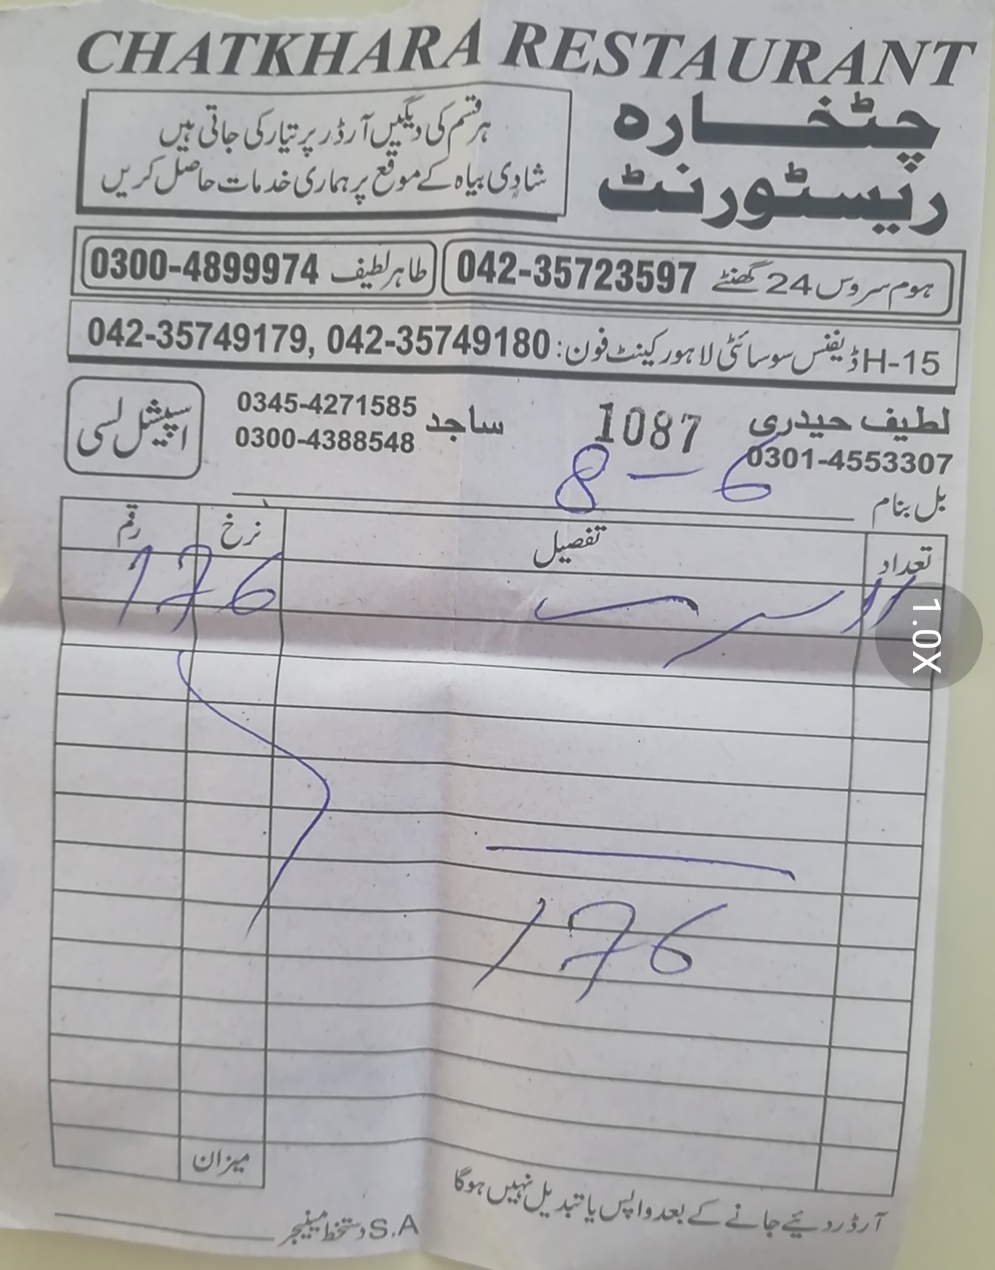 CHATKHARA RESTAURANT
چٹخارہ
ریسٹورنٹ
ہر قسم کی دیگیں آرڈر پر تیار کی جاتی ہیں
شادی بیاہ کے موقع پر ہماری خدمات حاصل کریں
ہوم سروس 24 گھنٹے 042-35723597
طاہر لطیف 0300-4899974
H-15 ڈیفنس سوسائٹی لاہور کینٹ فون: 042-35749179, 042-35749180
لطیف حیدری
0301-4553307
1087
ساجد 0345-4271585
0300-4388548
اسپیشل لسی
8-6
بل بنام
تعداد تفصیل نرخ رقم
176
176
میزان
آرڈر دیئے جانے کے بعد واپس یا تبدیل نہیں ہوگا
S.A دستخط مینیجر
1.0X